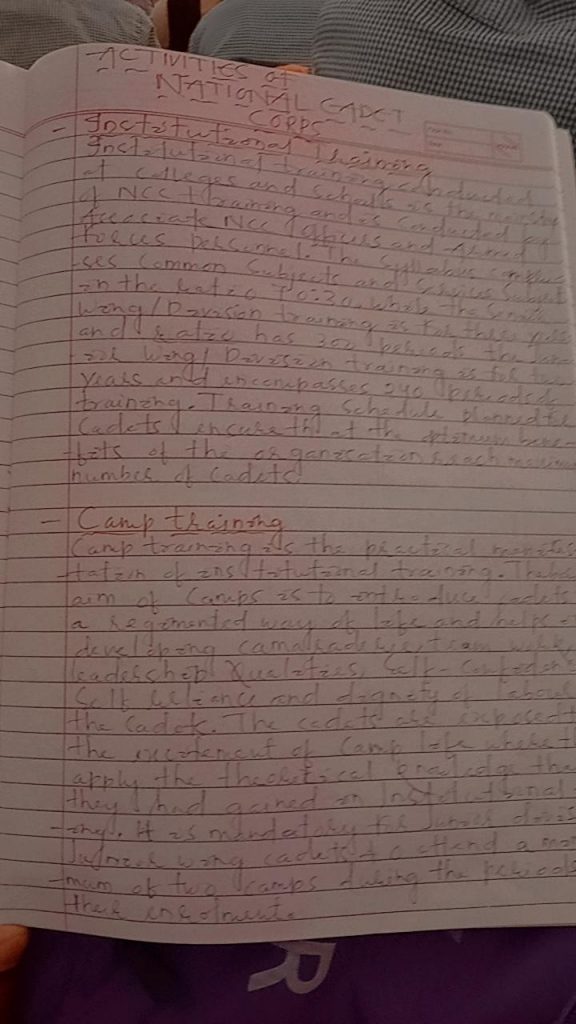 ACTIVITIES of
NATIONAL CADET
CORPS
- Institutional Training
Institutional training conducted
of colleges and schools is the
of NCC training and is conducted by
Associate NCC Officers and Armed
Forces personnel. The syllabus
-ses Common Subjects and Service Subject
in the ratio 70:30, while the Senior
Wing/Division training is for three years
and ratio has 300 periods the Jun-
ior Wing/Division training is for two
years and encompasses 240 periods of
training. Training schedule planned for
Cadets ensure that the optimum bene-
-fits of the organisation reach maximum
number of cadets
- Camp training
Camp training is the practical manifes
-tation of institutional training. The
aim of Camps is to introduce cadets
a regimented way of life and helps
developing camaraderie, team work,
leadership qualities, Self-Confiden
Self reliance and dignity of labour
the Cadets. The cadets are exposed t
the excitement of Camp life where t
apply the theoretical knowledge tha
they had gained in Institutional
-ing. It is mandatory for Junior divis
Junior wing cadets to attend a
-mum of two camps during the periods
their enrolment.
R